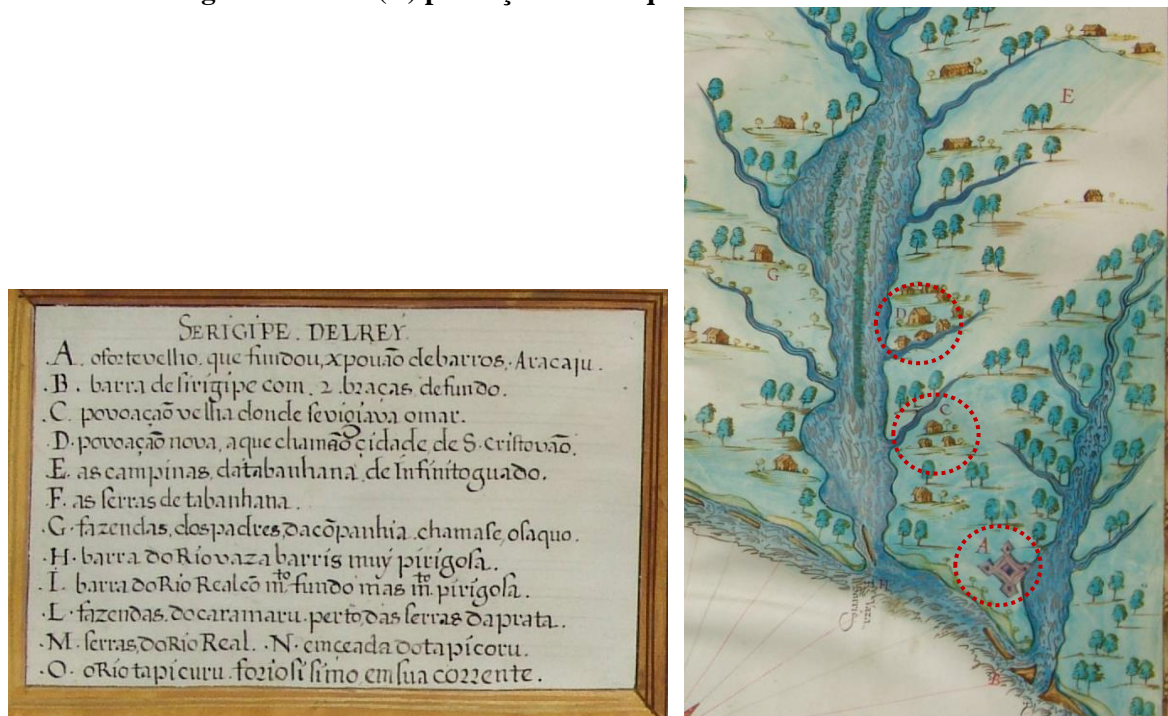 SERIGIPE. DELREY.
A. ofortevelho. que fundou, xpouaõ debarros. Aracaju.
B. barra desirigipe com. 2. braças. defundo.
C. povoaçaõ velha donde sevigiava omar.
D. povoaçaõ nova, aque chamaõ çidade de S. cristovaõ.
E. as campinas, databanhana, de Infinitoguado.
F. as serras detabanhana.
G. fazendas, dospadres, dacõpanhia. chamase, osaquo.
H. barra do Riovaza barris muy pirigosa.
I. barra doRio Realcõ m.to fundo mas m.to pirigosa.
L. fazendas. docaramuru. perto, das serras daprata.
M. serras, doRio Real. N. emceada dotapicoru.
O. oRio tapicuru. foriosissimo, emsua corrente.
E
G
D
C
A
H
B